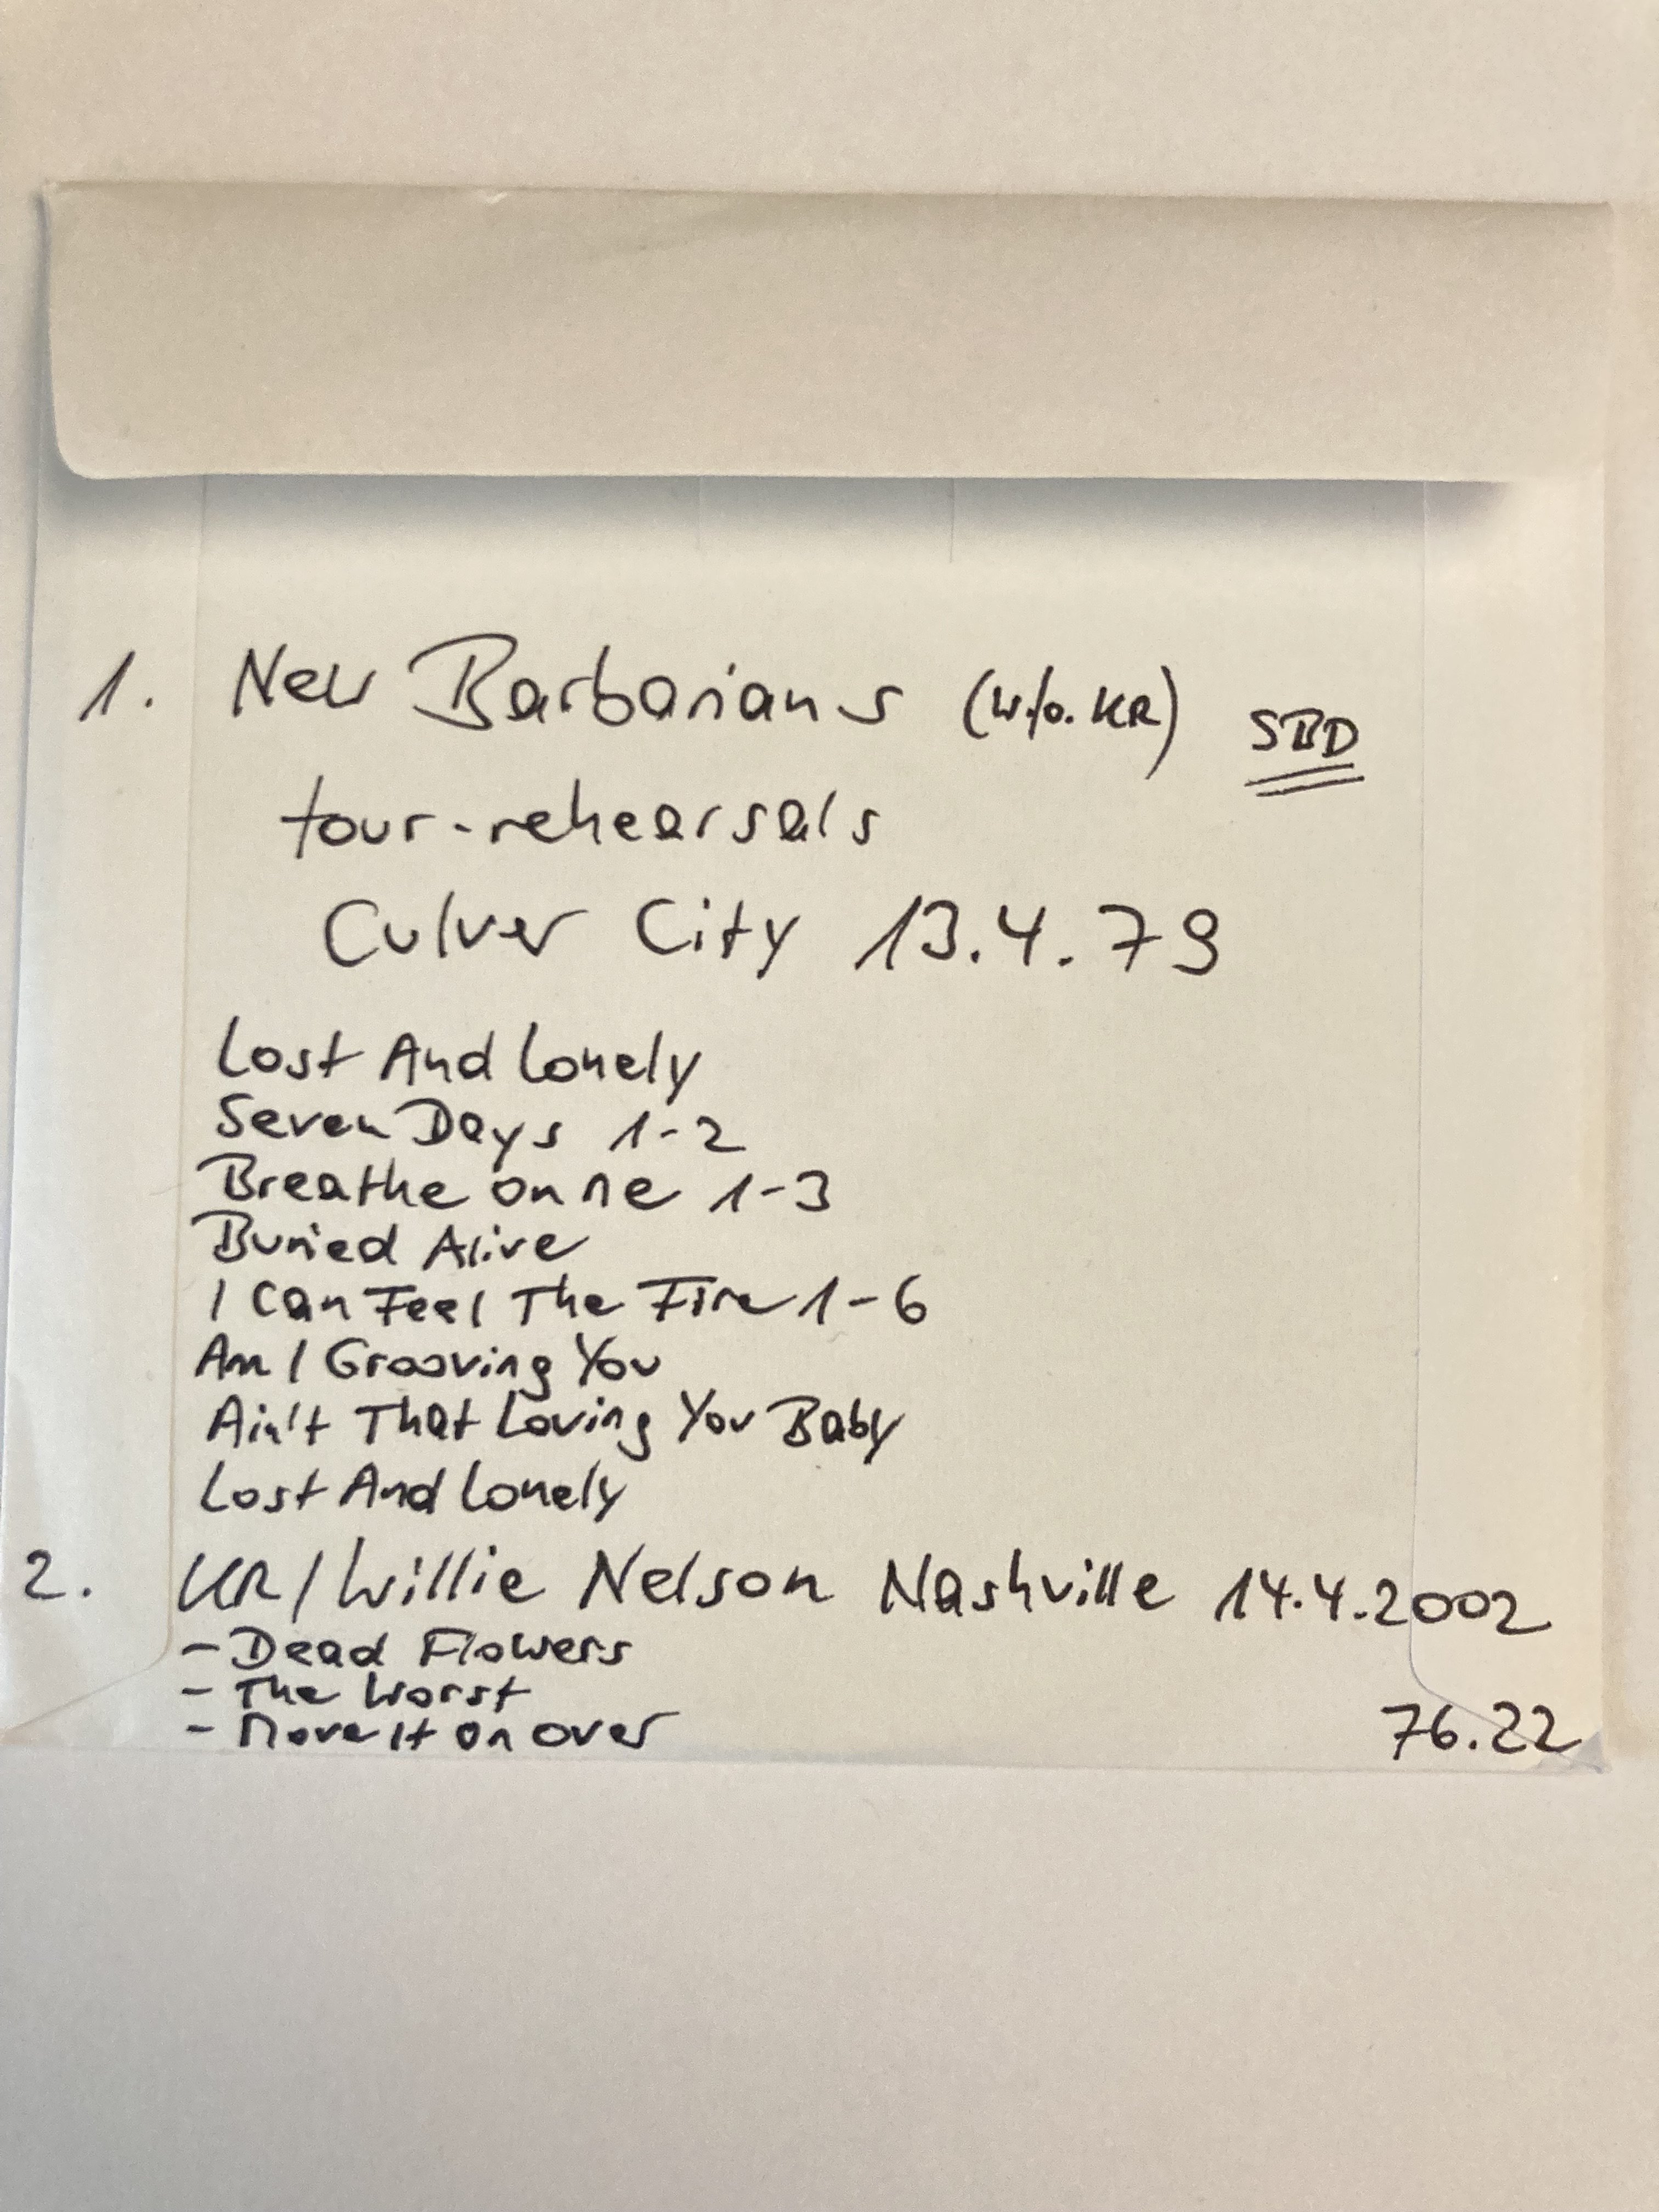 1. New Barbarians (w./o. KR) SBD
tour-rehearsals
Culver City 13.4.79
Lost And Lonely
Seven Days 1-2
Breathe on me 1-3
Buried Alive
I Can Feel The Fire 1-6
Am I Grooving You
Ain't That Loving You Baby
Lost And Lonely
2. KR/Willie Nelson Nashville 14.4.2002
- Dead Flowers
- The Worst
- Move It On Over
76.22